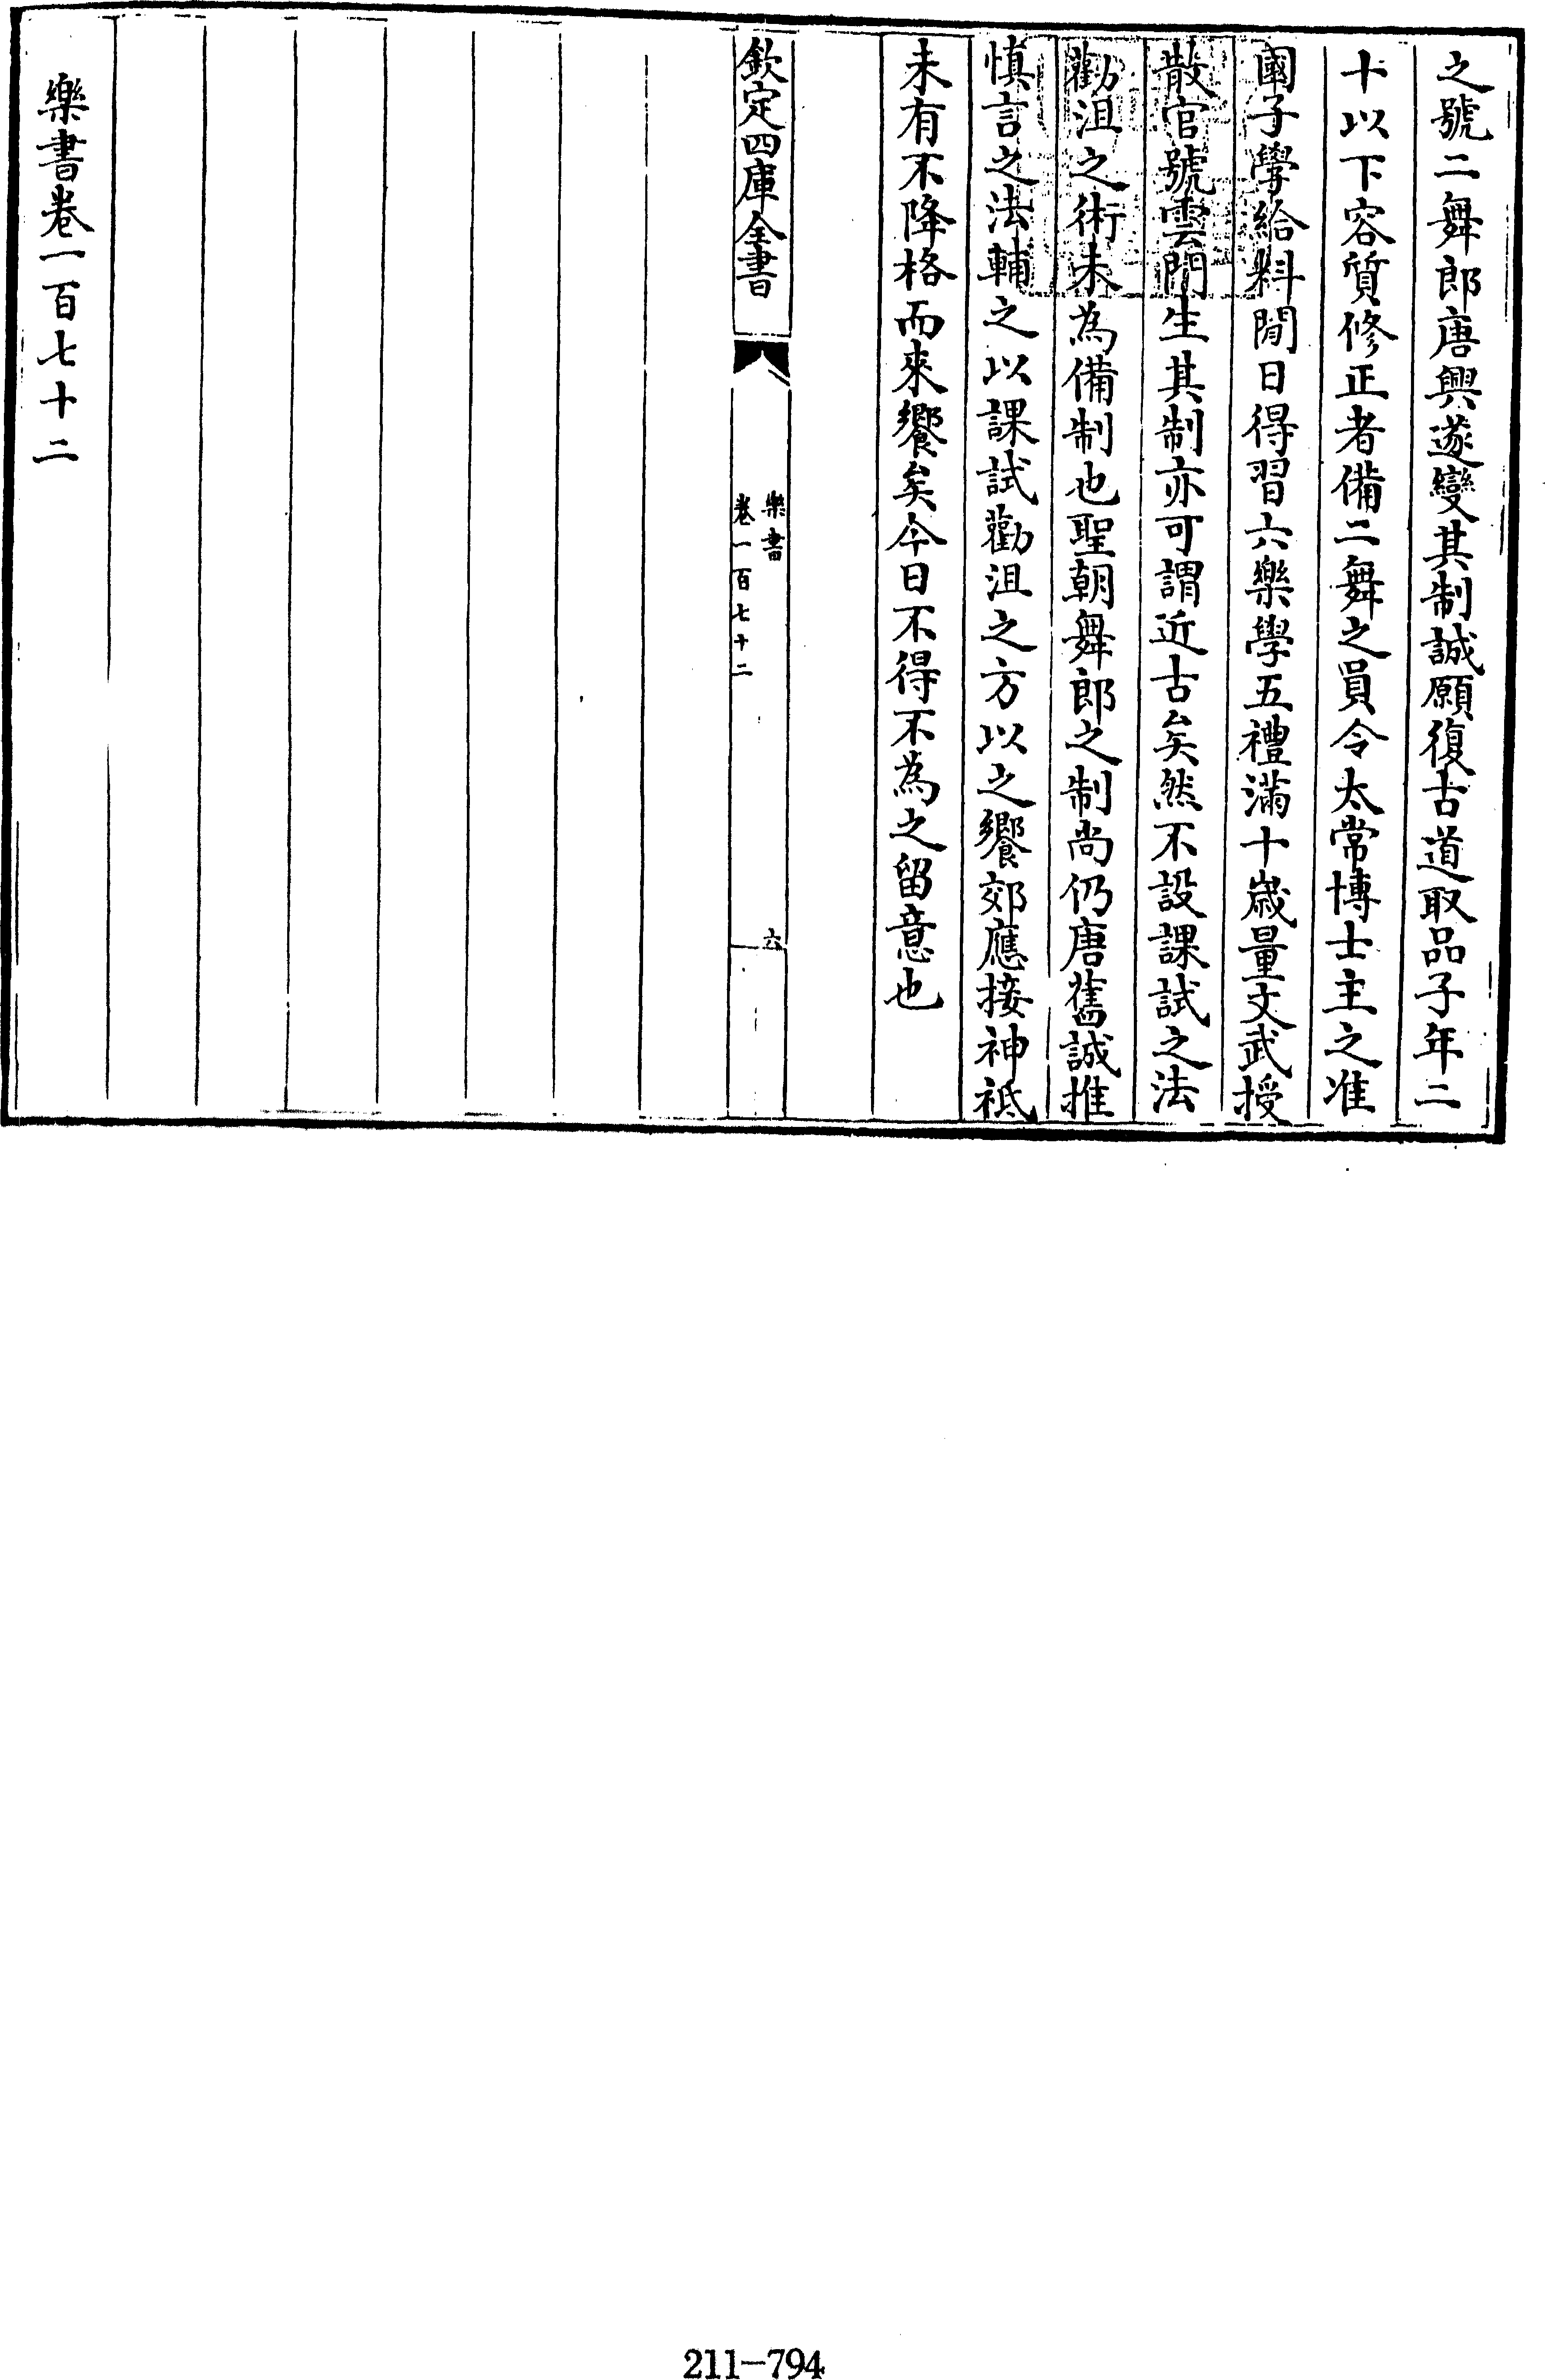 之號二舞郎唐興遂變其制誠願復古道取品子年二
十以下容質修正者備二舞之員令太常博士主之准
國子學給料閒日得習六樂學五禮滿十歲量文武授
散官號雲門生其制亦可謂近古矣然不設課試之法
勸沮之術未為備制也聖朝舞郎之制尚仍唐舊誠推
慎言之法輔之以課試勸沮之方以之饗郊應接神祗
未有不降格而來饗矣今日不得不為之留意也
欽定四庫全書
樂書
卷一百七十二
六
樂書卷一百七十二
211-794